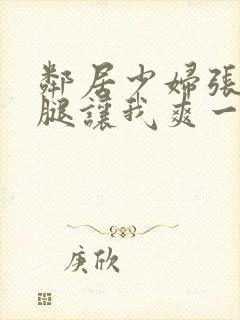 鄰居少婦張
腿讓我爽一
庚欣